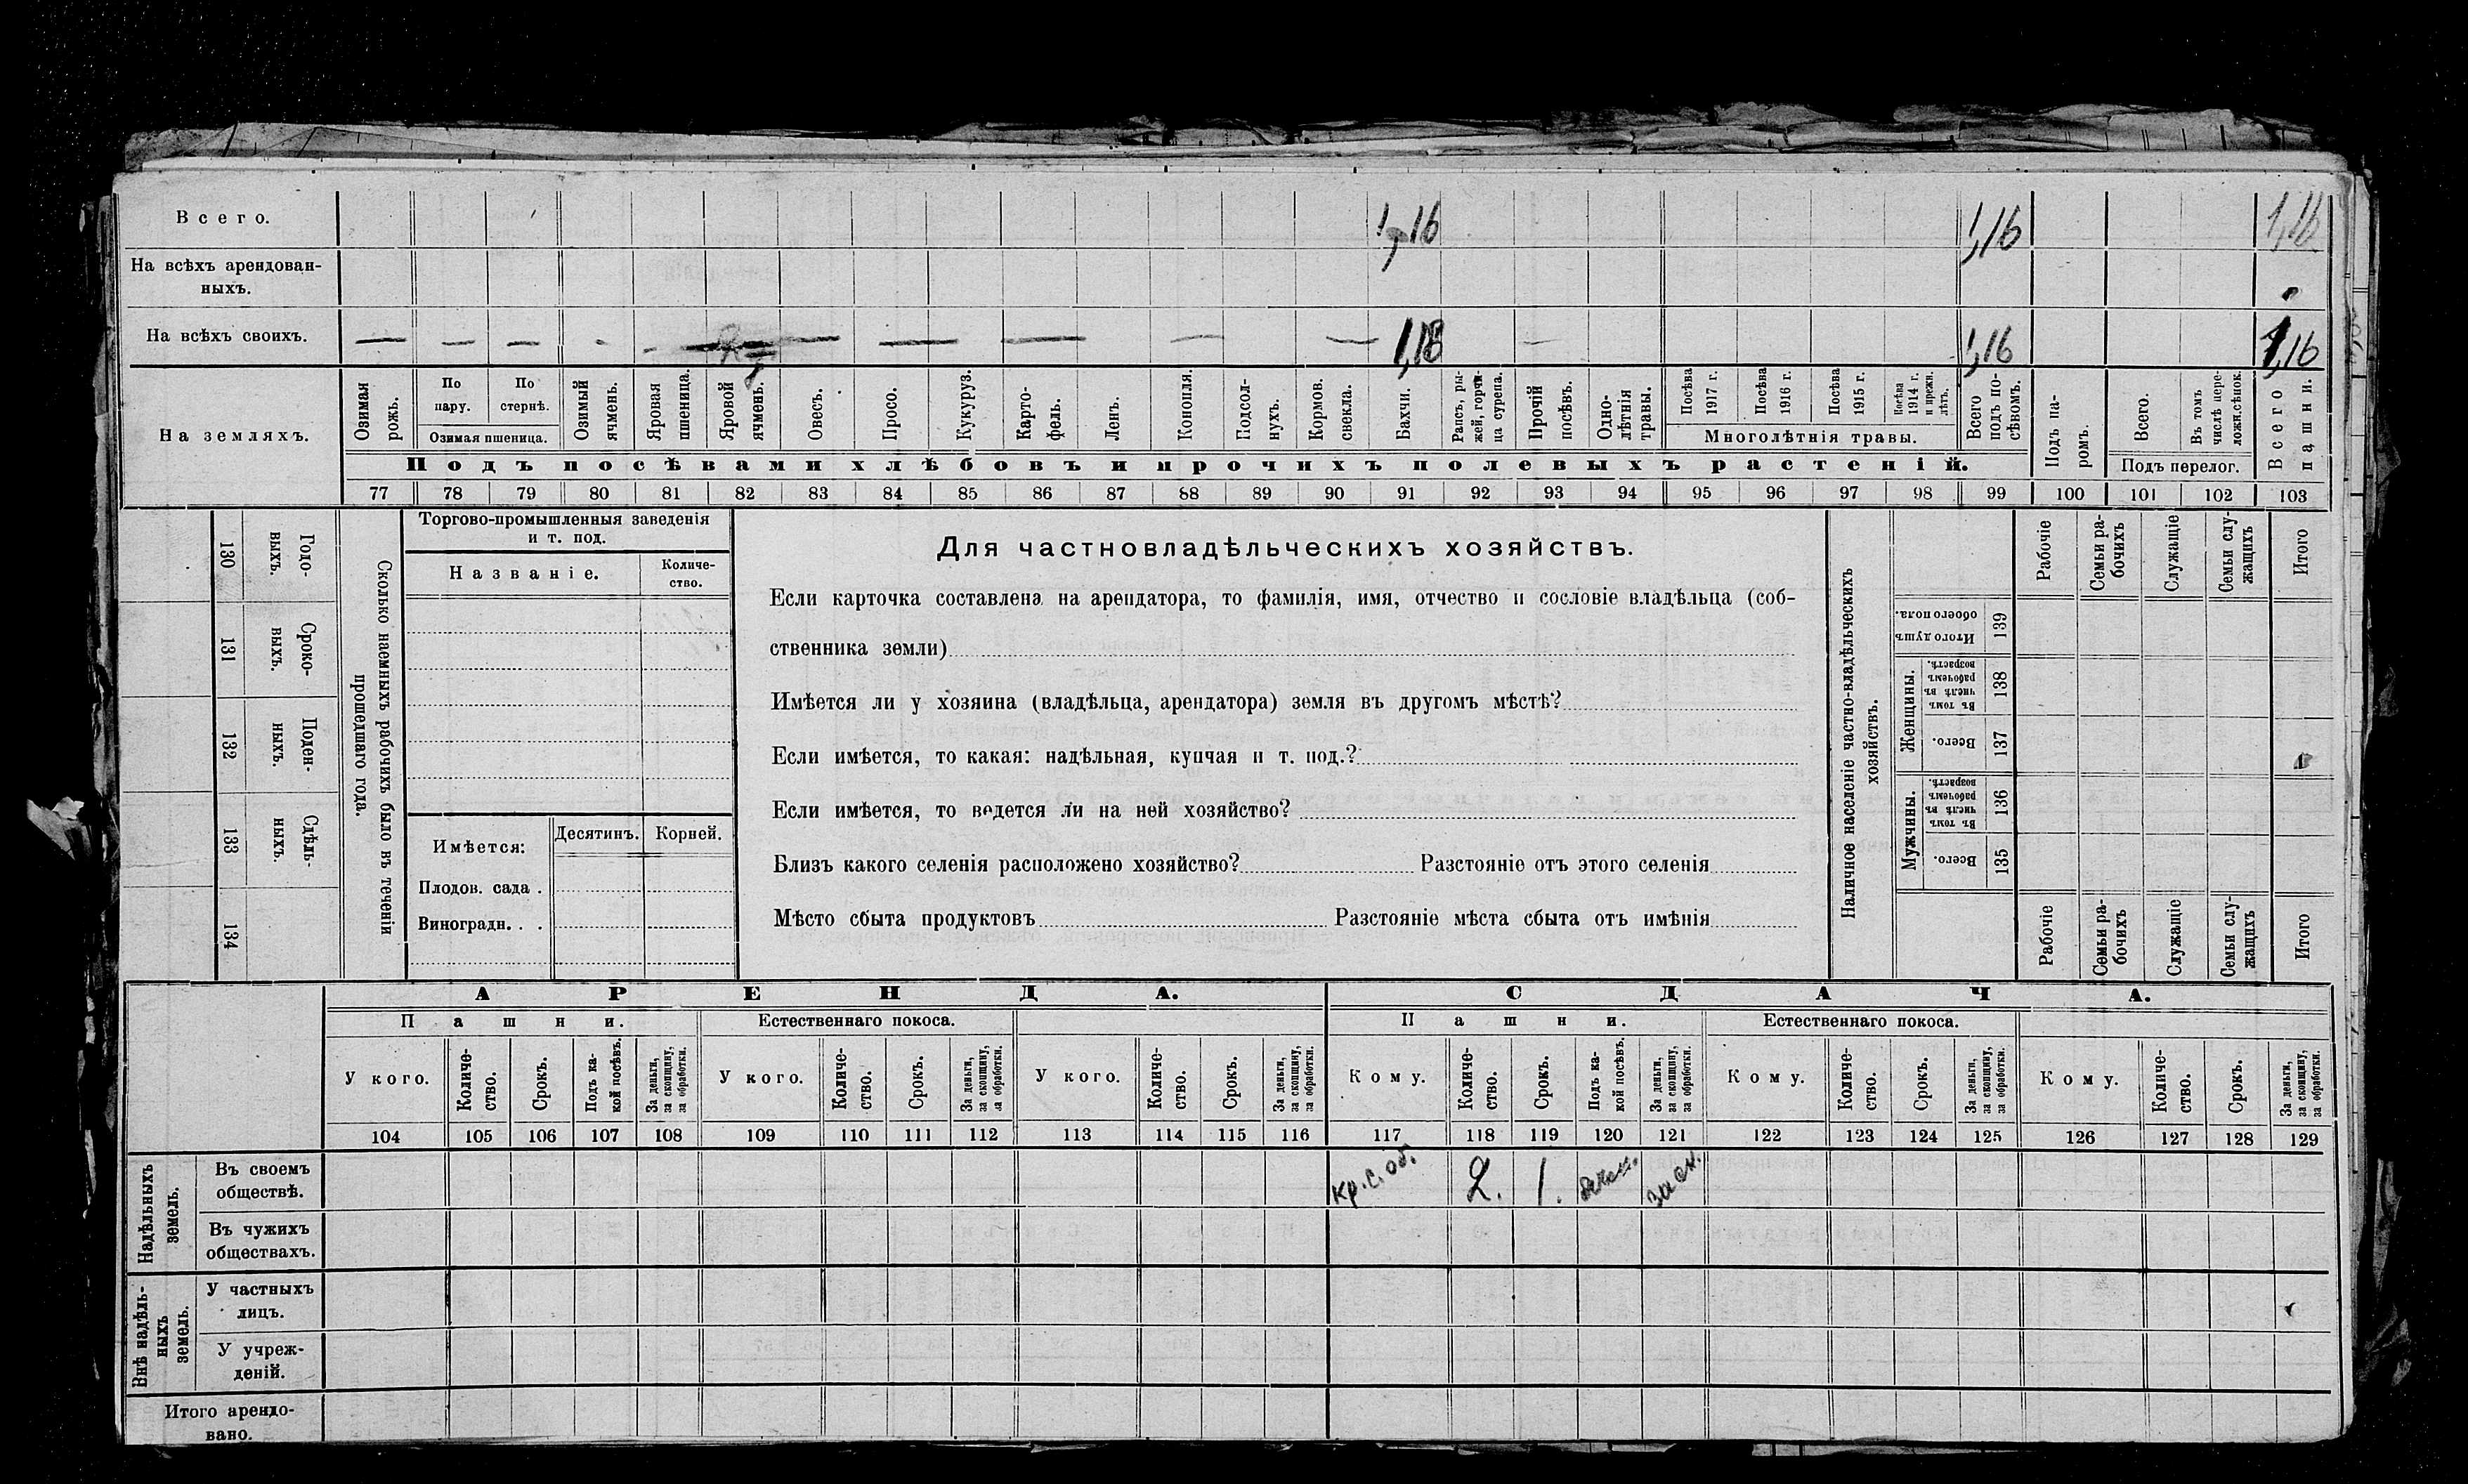 Всего. 1,16 1,16 1,16
На всѣхъ арендован-
ныхъ.
На всѣхъ своихъ. — — — - — — — — — — — — 1,16 1,16
На земляхъ.
Озимая рожь.
По пару.
По стернѣ.
Озимая пшеница.
Озимый ячмень.
Яровая пшеница.
Яровой ячмень.
Овесъ.
Просо.
Кукуруз.
Карто-
фель.
Ленъ.
Конопля.
Подсол-
нухъ.
Кормов. свекла.
Бахчи.
Рапсъ, ры-
жей, горчи-
ца сурепа.
Прочій посѣвъ.
Одно-
лѣтнія травы.
Посѣва 1917 г.
Посѣва 1916 г.
Посѣва 1915 г.
Посѣва 1914 г. и прежн. лѣтъ.
Многолѣтнія травы.
Всего подъ по-
сѣвомъ.
Подъ па-
ромъ.
Всего.
Въ томъ числѣ пере-
ложн.сѣнок.
Подъ перелог.
Всего пашни.
Подъ посѣвами хлѣбовъ и прочихъ полевыхъ растеній.
77 78 79 80 81 82 83 84 85 86 87 88 89 90 91 92 93 94 95 96 97 98 99 100 101 102 103
130 Годо-
выхъ.
131 Сроко-
выхъ.
132 Поден-
ныхъ.
133 Сдѣль-
ныхъ.
134
Сколько наемныхъ рабочихъ было въ теченіи
прошедшаго года.
Торгово-промышленныя заведенія
и т. под.
Названіе.
Количе-
ство.
Имѣется:
Десятинъ. Корней.
Плодов. сада .
Виноградн. . .
Для частновладѣльческихъ хозяйствъ.
Если карточка составлена на арендатора, то фамилія, имя, отчество и сословіе владѣльца (соб-
ственника земли)
Имѣется ли у хозяина (владѣльца, арендатора) земля въ другомъ мѣстѣ?
Если имѣется, то какая: надѣльная, купчая и т. под.?
Если имѣется, то ведется ли на ней хозяйство?
Близъ какого селенія расположено хозяйство? Разстояніе отъ этого селенія
Мѣсто сбыта продуктовъ Разстояніе мѣста сбыта отъ имѣнія
Наличное населеніе частно-владѣльческихъ
хозяйствъ.
Рабочіе
Семьи ра-
бочихъ
Служащіе
Семьи слу-
жащихъ
Итого
Итого душъ
обоего пола.
139
Женщины.
Въ томъ числѣ въ рабочемъ возрастѣ.
138
Всего.
137
Мужчины.
Въ томъ числѣ въ рабочемъ возрастѣ.
136
Всего.
135
Рабочіе
Семьи ра-
бочихъ
Служащіе
Семьи слу-
жащихъ
Итого
АРЕНДА. СДАЧА.
Пашни. Естественнаго покоса. Пашни. Естественнаго покоса.
У кого.
Количе-
ство.
Срокъ.
Подъ ка-
кой посѣвъ.
За деньги, за скопщину, за обработки.
У кого.
Количе-
ство.
Срокъ.
За деньги, за скопщину, за обработки.
У кого.
Количе-
ство.
Срокъ.
За деньги, за скопщину, за обработки.
Кому.
Количе-
ство.
Срокъ.
Подъ ка-
кой посѣвъ.
За деньги, за скопщину, за обработки.
Кому.
Количе-
ство.
Срокъ.
За деньги, за скопщину, за обработки.
Кому.
Количе-
ство.
Срокъ.
За деньги, за скопщину, за обработки.
104 105 106 107 108 109 110 111 112 113 114 115 116 117 118 119 120 121 122 123 124 125 126 127 128 129
Надѣльныхъ
земель.
Въ своемъ
обществѣ.
кр. с. об. 2. 1. за ск.
Въ чужихъ
обществахъ.
Внѣ надѣль-
ныхъ
земель.
У частныхъ
лицъ.
У учреж-
деній.
Итого арендо-
вано.